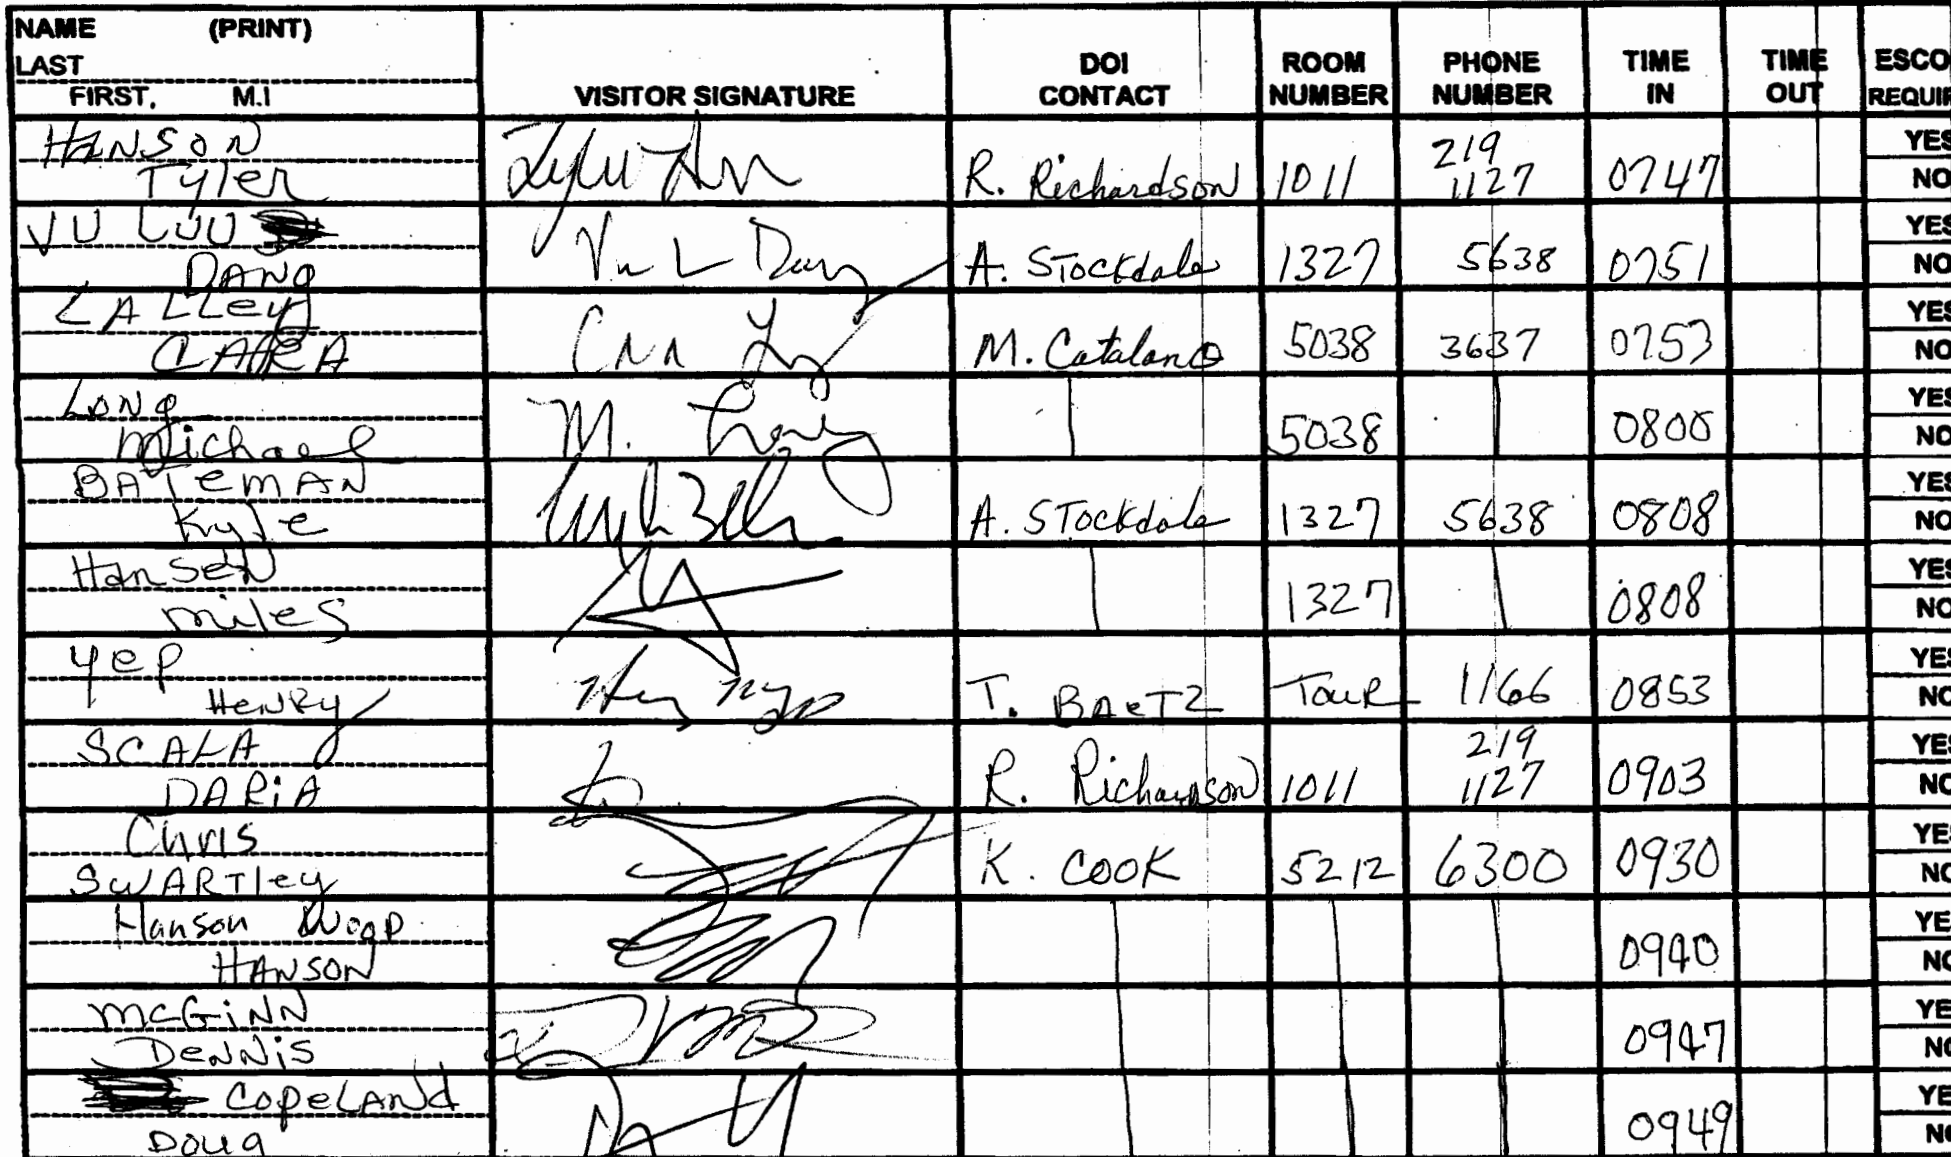 NAME (PRINT)
LAST
FIRST, M.I
VISITOR SIGNATURE
DOI CONTACT
ROOM NUMBER
PHONE NUMBER
TIME IN
TIME OUT
ESCO
REQUIR
HANSON
Tyler
R. Richardson 1011 219 1127 0747
YES
NO
VU LUU
DANG
Vu L Dang
A. Stockdale 1327 5638 0751
YES
NO
LALLey
CAREA
M. Catalano 5038 3637 0753
YES
NO
Long
Michael
M. Long
5038 0800
YES
NO
BATEMAN
Kyle
A. Stockdale 1327 5638 0808
YES
NO
Hansen
miles
1327 0808
YES
NO
Yep
HenRy
T. BAeTZ Tour 1166 0853
YES
NO
SCALA
DARiA
R. Richardson 1011 219 1127 0903
YES
NO
Chris
SWARTley
K. COOK 5212 6300 0930
YES
NO
Hanson Woop
HANSON
0940
YE
NO
McGiNN
DeNNiS
0947
YE
NO
CopeLANd
Doug
0949
YE
NO